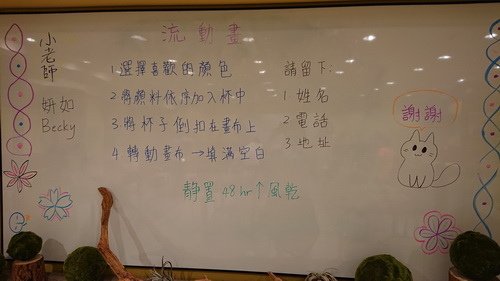 流動畫
小老師
妍如
Becky
1 選擇喜歡的顏色
2 將顏料依序加入杯中
3 將杯子倒扣在畫布上
4 轉動畫布→填滿空白
靜置 48 hr↑風乾
請留下:
1 姓名
2 電話
3 地址
謝謝